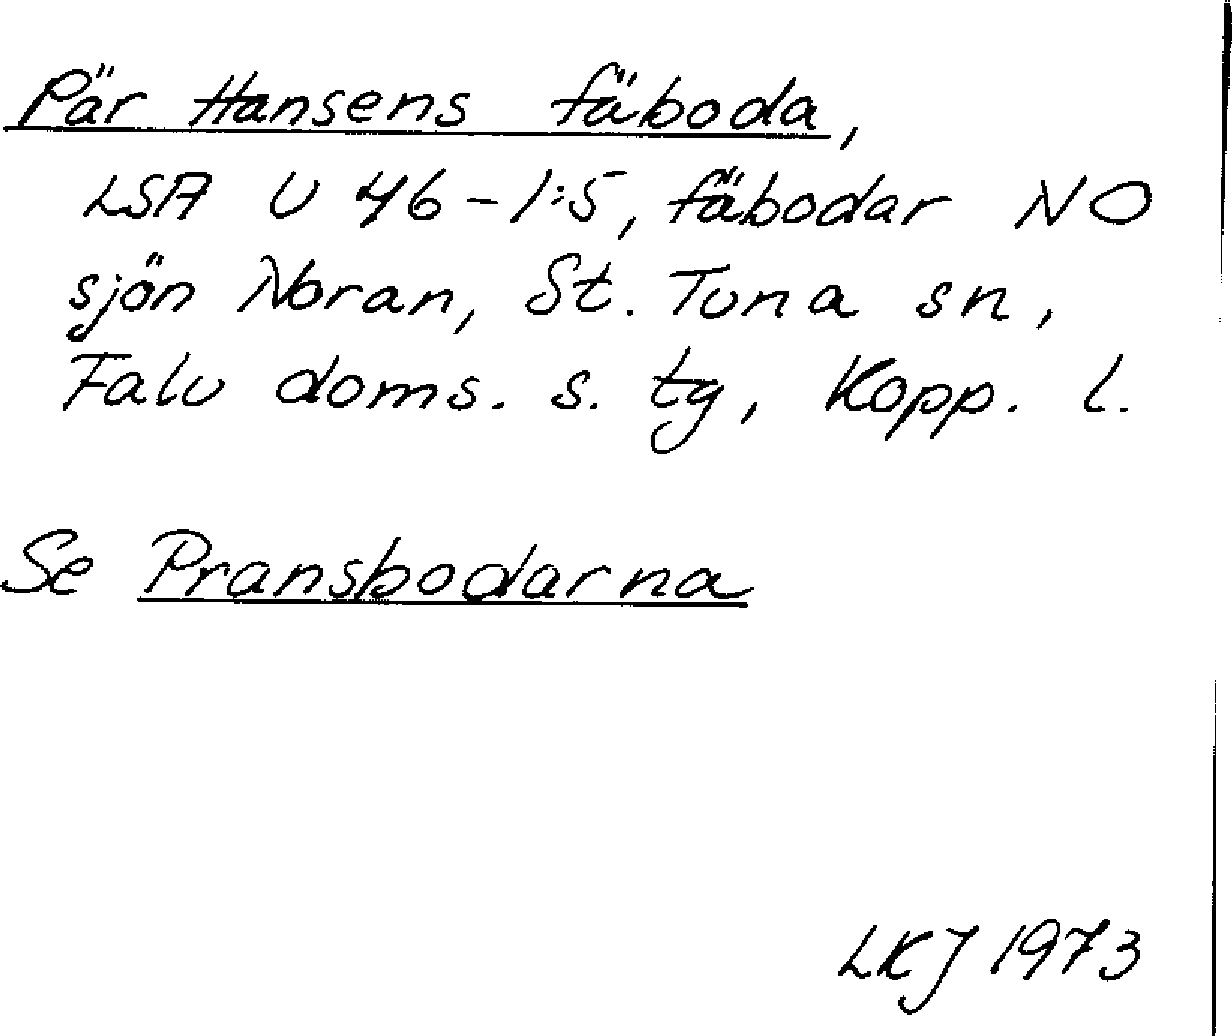 Pär Hansens fäboda,
LSA U 46-1:5, fäbodar NO
sjön Noran, St. Tuna sn,
Falu doms. s. tg, Kopp. l.
Se Pransbodarna
LKJ 1973